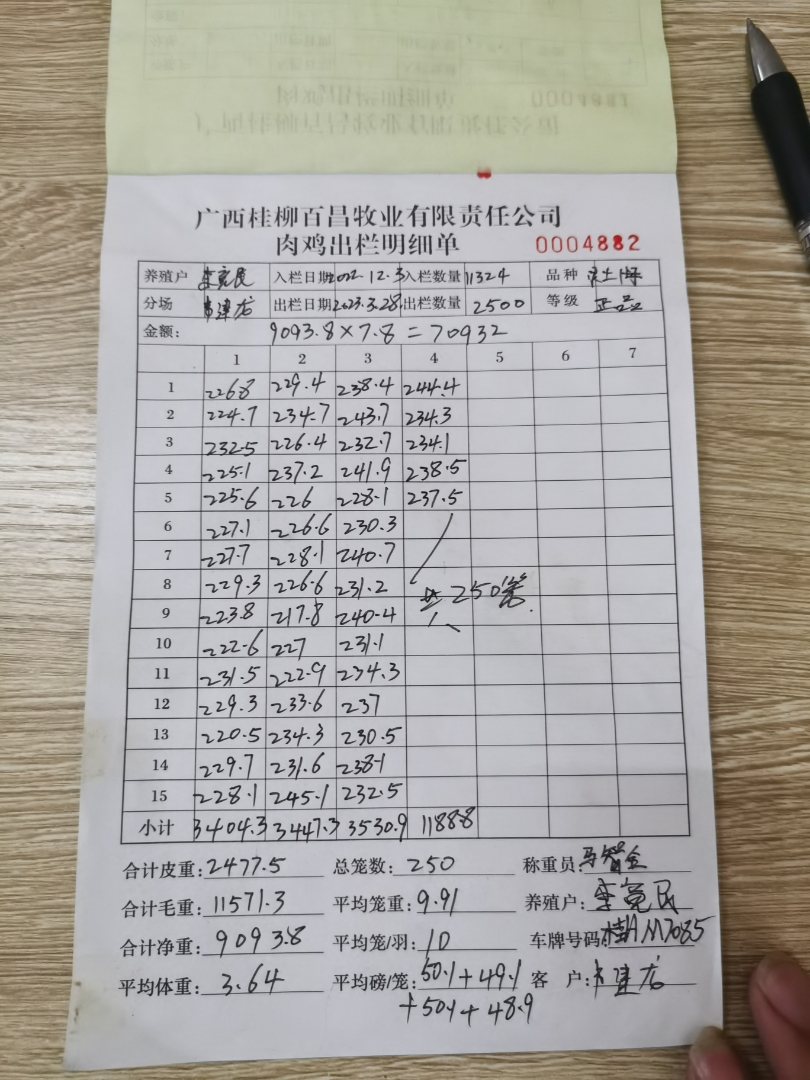 广西桂柳百昌牧业有限责任公司
肉鸡出栏明细单 0004882
养殖户 李冕民 入栏日期 2022.12.3 入栏数量 11324 品种
分场 建龙 出栏日期 2023.3.28 出栏数量 2500 等级 正品
金额: 9093.8×7.8=70932
1 2 3 4 5 6 7
1 226.8 229.4 238.4 244.4
2 224.7 234.7 243.7 234.3
3 232.5 226.4 232.7 234.1
4 225.1 237.2 241.9 238.5
5 225.6 226 228.1 237.5
6 227.1 226.6 230.3
7 227.7 228.1 240.7
8 229.3 226.6 231.2 共250笼
9 223.8 217.8 240.4
10 222.6 227 231.1
11 231.5 222.9 234.3
12 229.3 233.6 237
13 220.5 234.3 230.5
14 229.7 231.6 238.1
15 228.1 245.1 232.5
小计 3404.3 3447.3 3530.9 1188.8
合计皮重: 2477.5 总笼数: 250 称重员: 马智全
合计毛重: 11571.3 平均笼重: 9.91 养殖户: 李冕民
合计净重: 9093.8 平均笼/羽: 10 车牌号码: 桂AM7085
平均体重: 3.64 平均磅/笼: 50.1+49.1 客 户: 建龙
+50.1+48.9